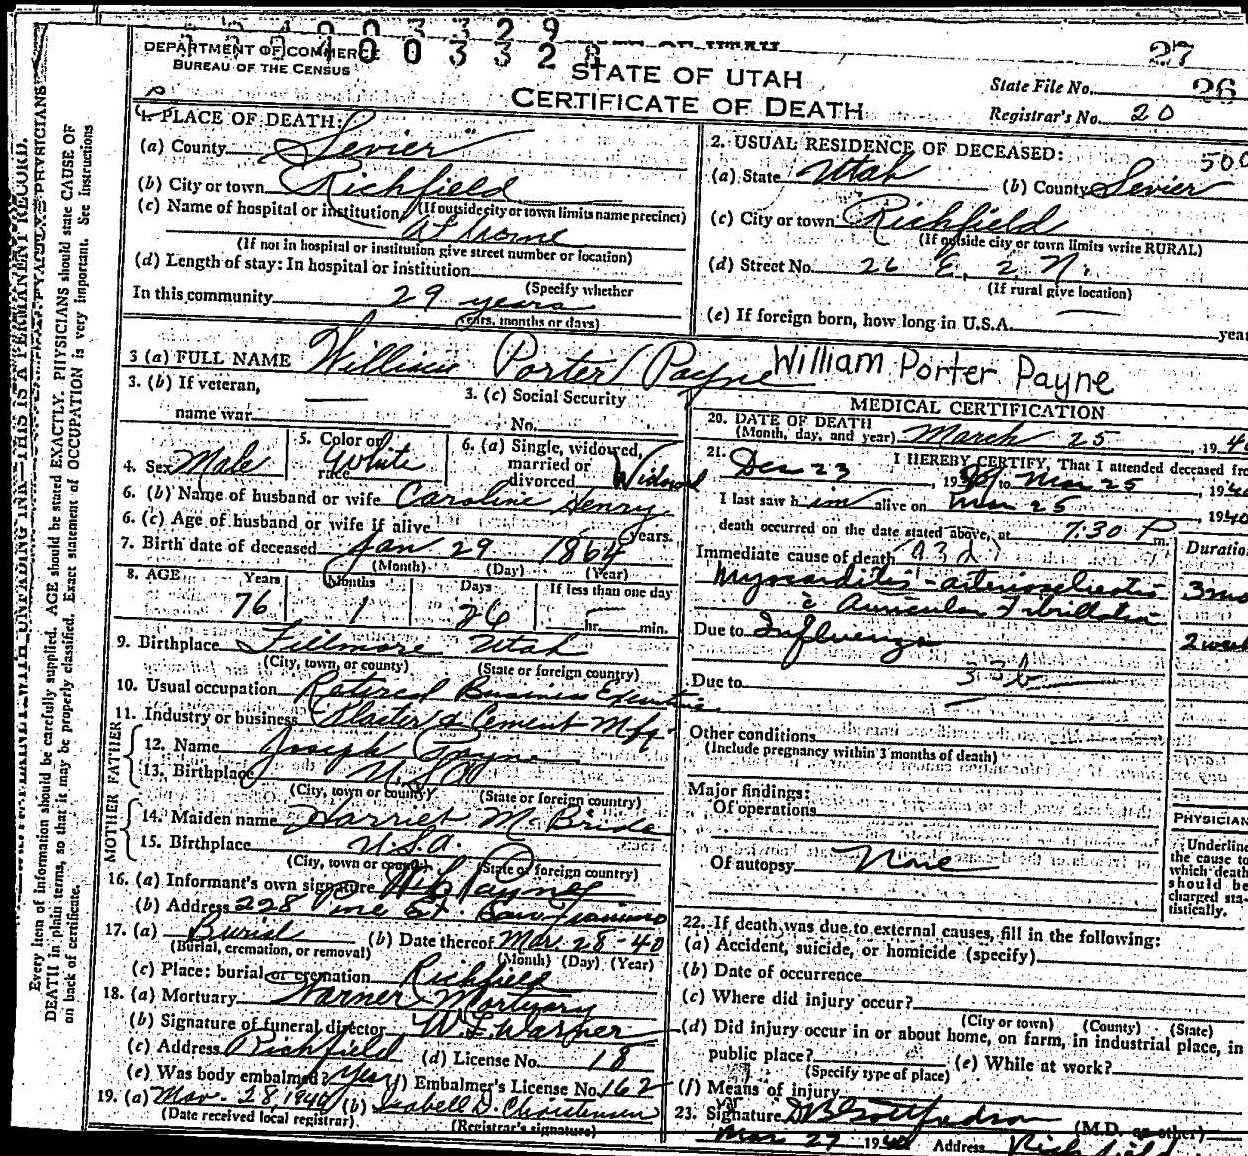 3 3 4 0 0 3 3 2 9
DEPARTMENT OF COMMERCE
BUREAU OF THE CENSUS
4 0 0 3 3 2 8
STATE OF UTAH
CERTIFICATE OF DEATH
27
State File No. 26
Registrar's No. 20
WRITE PLAINLY WITH UNFADING INK—THIS IS A PERMANENT RECORD.
Every item of information should be carefully supplied. AGE should be stated EXACTLY. PHYSICIANS should state CAUSE OF
DEATH in plain terms, so that it may be properly classified. Exact statement of OCCUPATION is very important. See Instructions
on back of certificate.
1. PLACE OF DEATH:
(a) County Sevier
(b) City or town Richfield
(If outside city or town limits name precinct)
(c) Name of hospital or institution
At home
(If not in hospital or institution give street number or location)
(d) Length of stay: In hospital or institution
(Specify whether
In this community 29 years
years, months or days)
2. USUAL RESIDENCE OF DECEASED: 500
(a) State Utah (b) County Sevier
(c) City or town Richfield
(If outside city or town limits write RURAL)
(d) Street No. 26 E. 2 N.
(If rural give location)
(e) If foreign born, how long in U.S.A. — year
3 (a) FULL NAME William Porter Payne William Porter Payne
3. (b) If veteran,
name war —
3. (c) Social Security
No.
4. Sex Male
5. Color or
race White
6. (a) Single, widowed,
married or
divorced Widowed
6. (b) Name of husband or wife Caroline Henry
6. (c) Age of husband or wife if alive years.
7. Birth date of deceased Jan 29 1864
(Month) (Day) (Year)
8. AGE Years Months Days If less than one day
76 1 26 — hr. min.
9. Birthplace Fillmore Utah
(City, town, or county) (State or foreign country)
10. Usual occupation Retired Business Executive
11. Industry or business Plaster & Cement Mfg.
FATHER
12. Name Joseph Payne
13. Birthplace U.S.A.
(City, town or county) (State or foreign country)
MOTHER
14. Maiden name Harriet McBride
15. Birthplace U.S.A.
(City, town or county) (State or foreign country)
16. (a) Informant's own signature Payne
(b) Address 228 Pine St. San Francisco
17. (a) Burial (b) Date thereof Mar. 28-40
(Burial, cremation, or removal) (Month) (Day) (Year)
(c) Place: burial or cremation Richfield
18. (a) Mortuary Warner Mortuary
(b) Signature of funeral director W.L. Warner
(c) Address Richfield (d) License No. 18
(e) Was body embalmed? Yes (f) Embalmer's License No. 162
19. (a) Mar. 28 1940 (b) Isabell D. Christensen
(Date received local registrar) (Registrar's signature)
MEDICAL CERTIFICATION
20. DATE OF DEATH
(Month, day, and year) March 25, 1940
21. I HEREBY CERTIFY, That I attended deceased fro
Dec 23, 19 to Mar 25, 1940
I last saw him alive on Mar 25, 1940
death occurred on the date stated above, at 7:30 P m.
Immediate cause of death 93d Duration
Myocarditis - arteriosclerotic 3 mo
c Auricular Fibrillation
Due to Influenza 2 week
33b
Due to —
Other conditions
(Include pregnancy within 3 months of death)
Major findings:
Of operations
Of autopsy None
PHYSICIAN
Underline
the cause to
which death
should be
charged sta-
tistically.
22. If death was due to external causes, fill in the following:
(a) Accident, suicide, or homicide (specify)
(b) Date of occurrence
(c) Where did injury occur?
(City or town) (County) (State)
(d) Did injury occur in or about home, on farm, in industrial place, in
public place? (e) While at work?
(Specify type of place)
(f) Means of injury
23. Signature Gottfredson (M.D. or other)
Mar 27 1940 Address Richfield